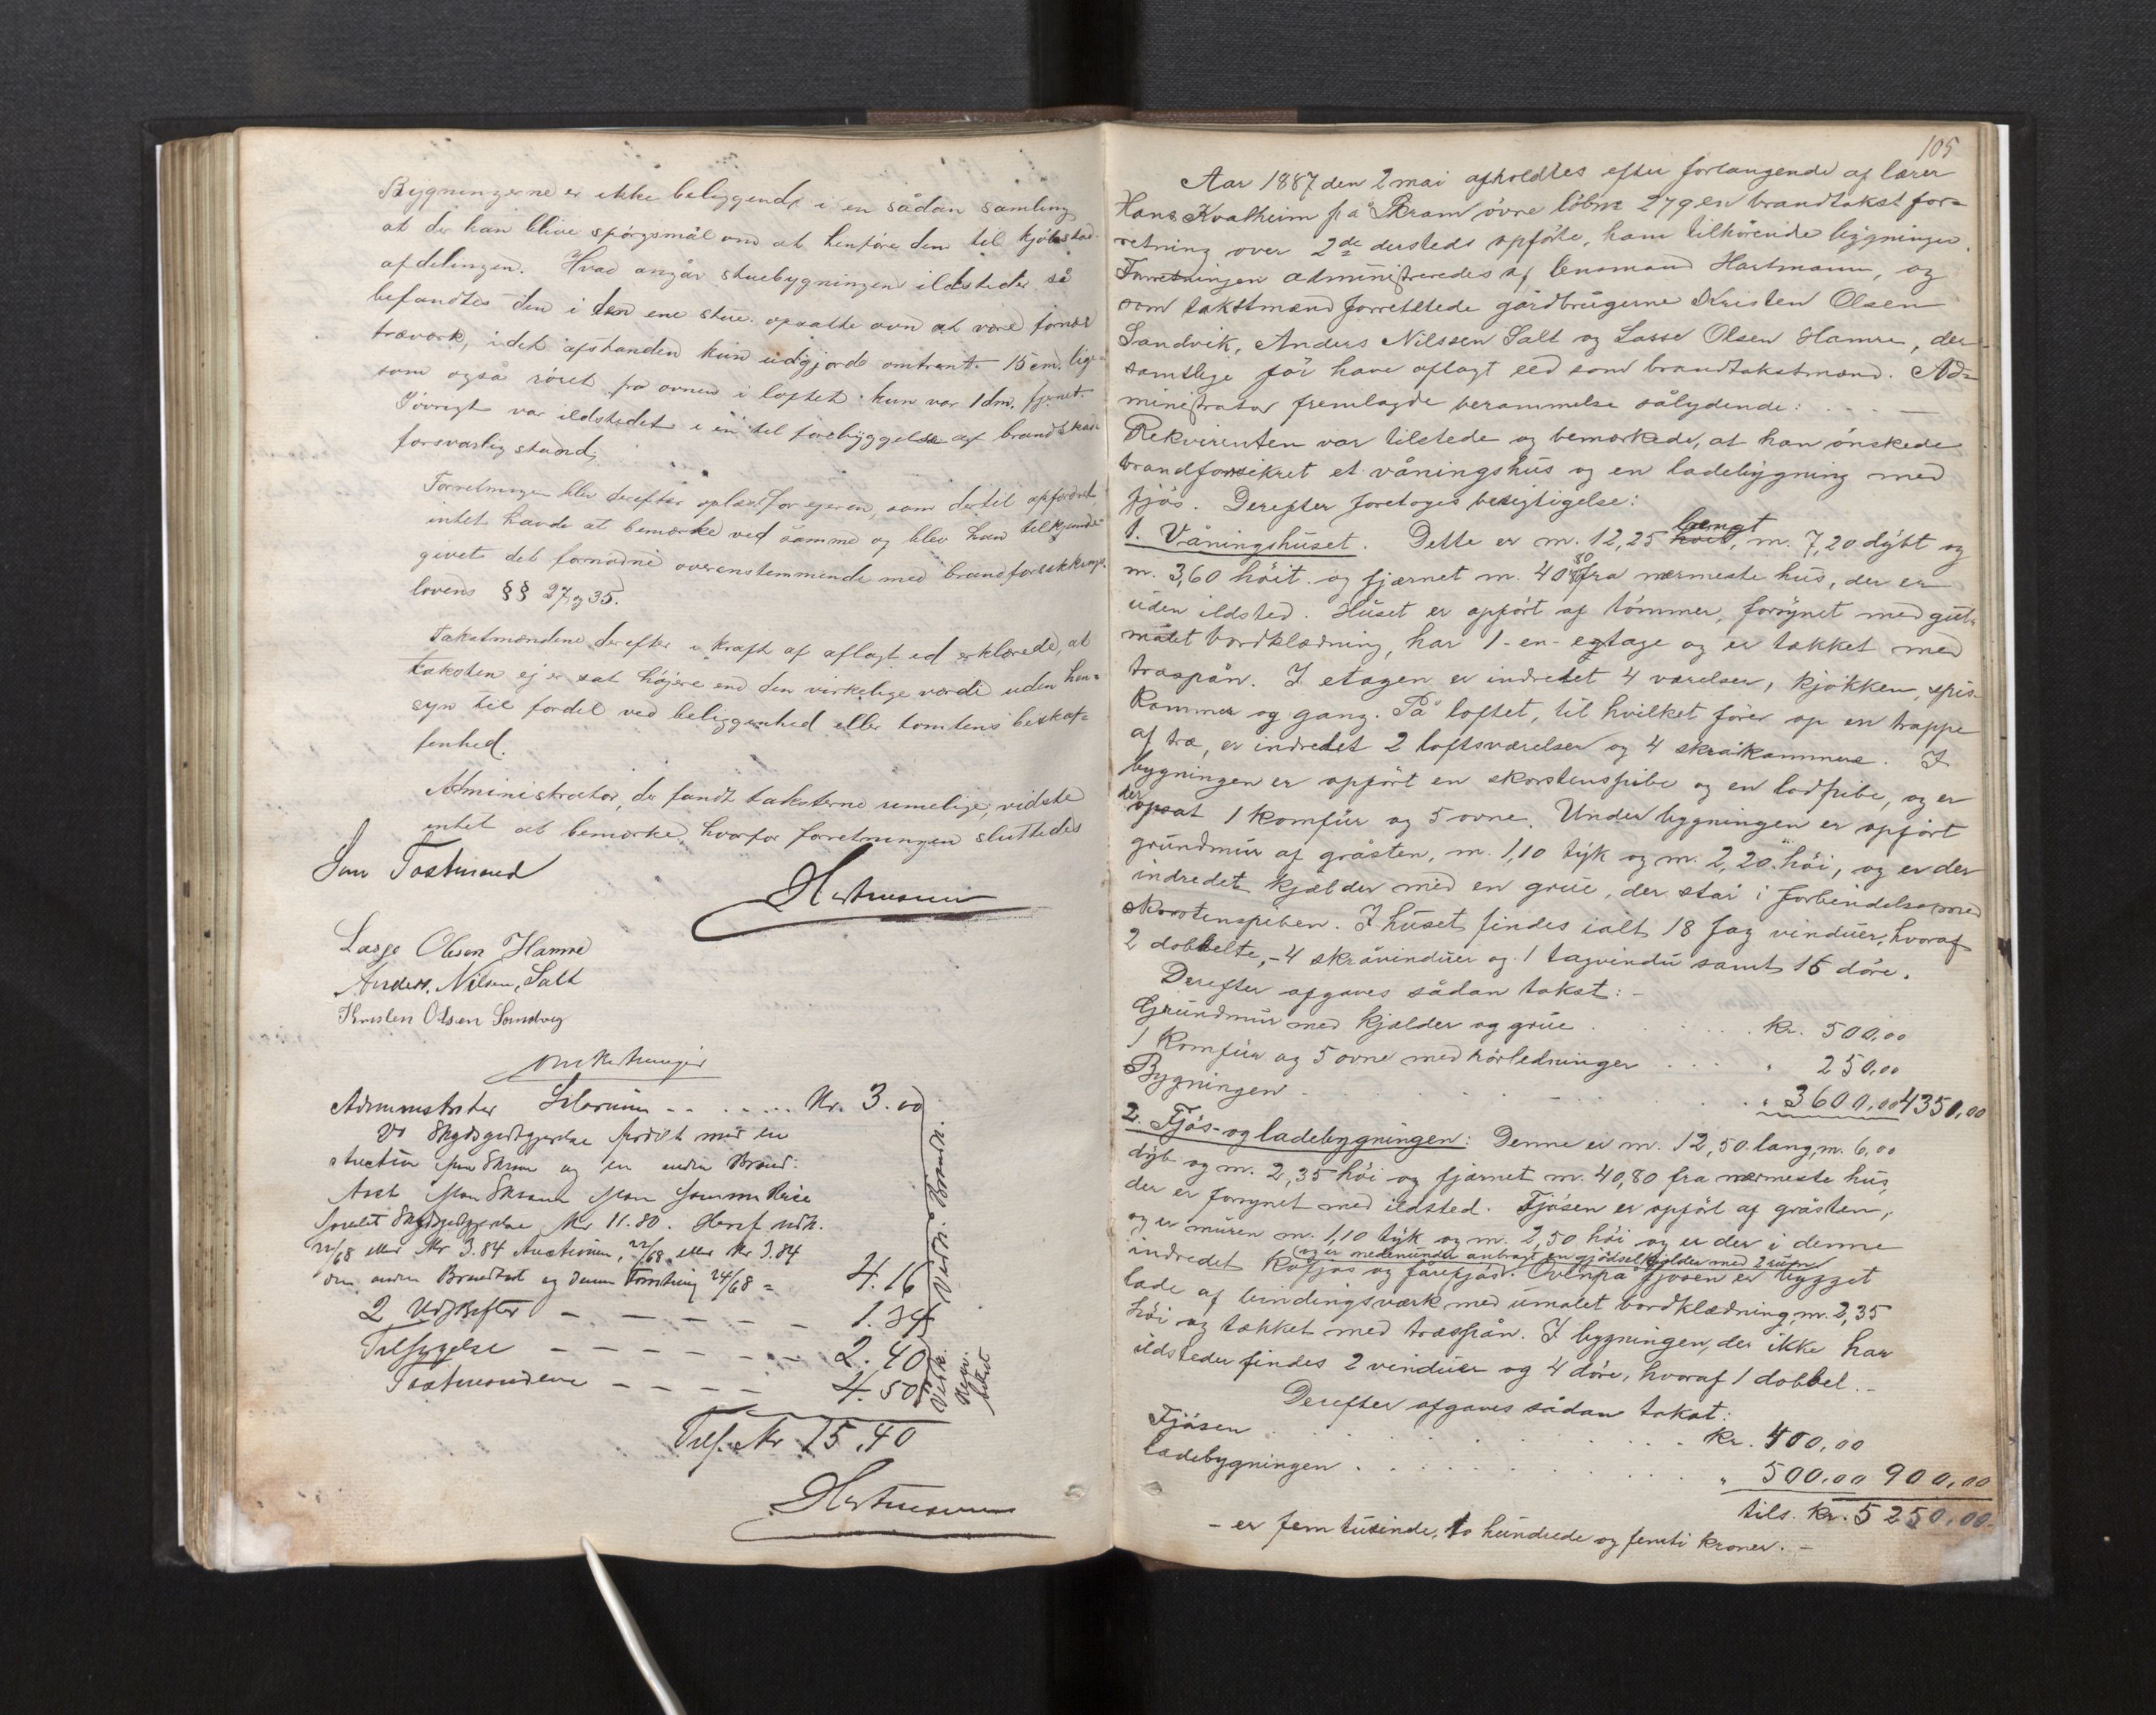 Bygningerne er ikke beliggende i en sådan samling
at der kan blive spörgsmål om at henföre dem til kjöbstad-
afdelingen. Hvad angår stuebygningens ildsteder så
befandtes den i den ene stue opsatte ovn at være fornær
træværk, idet afstanden kun udgjorde omtrent 15 cm. lige-
som også röret fra ovnen i loftet kun var 1 dm. fjernet.
I övrigt var ildstedet i en til forebyggelse af brandskade
forsvarlig stand.
Forretningen blev derefter oplæst for ejeren, som dertil opfordret
intet havde at bemærke ved samme og blev han tilkjende-
givet det fornødne overenstemmende med brandforsikkrings-
lovens §§ 27 og 35.
Takstmændene derefter i kraft af aflagt ed erklærede, at
taksten ej er sat højere end den virkelige værdi uden hen-
syn til fordel ved beliggenhed eller tomtens beskaf-
fenhed.
Administrator, der fandt taksterne rimelige, vidste
intet at bemærke, hvorfor forretningen sluttedes
Som Taxtmænd
Hartmann
Lasse Olsen Hamre
Anders Nilsen Salt
Kristen Olsen Sandvig
Omkostninger
Administrator Salarium - - ..... Kr. 3.00
Do Skydsgodtgjørelse fordelt med en
auction paa Skram og en anden Brand:
taxt paa Skram paa samme Reise
Samlet Skydsgodtgjørelse Kr 11.80. Heraf udr.
22/68 eller Kr 3.84 Auctionen, 22/68 eller Kr 3.84
den anden Brandtaxt og denne Forretning 24/68 = 4.16
2 Udskrifter - - - - - - 1.34
Tilsigelse - - - - - - 2.40
Taxtmændene - - - - 4.50
Tils. Kr 15.40
Hartmann
105
Aar 1887 den 2 mai afholdtes efter forlangende af lærer
Hans Kvalheim på Skram övre löbnr 279 en brandtakstfor-
retning over 2de dersteds opförte, ham tilhörende bygninger.
Forretningen administreredes af lensmand Hartmann, og
som takstmænd forrettede gårdbrugerne Kristen Olsen
Sandvik, Anders Nilssen Salt og Lasse Olsen Hamre, der
samtlige för have aflagt eed som brandtakstmænd. Ad-
ministrator fremlagde berammelse sålydende: . . . . —
Rekvirenten var tilstede og bemærkede, at han önskede
brandforsikret et våningshus og en ladebygning med
fjös. Derefter foretoges besigtigelse:
1. Våningshuset. Dette er m. 12,25 langt, m. 7,20 dybt og
m. 3,60 höit og fjærnet m. 40,80 fra nærmeste hus, der er
uden ildsted. Huset er opfört af tömmer, forsynet med gul-
malet bordklædning, har 1 -en- etage og er takket med
træspån. I etagen er indredet 4 værelser, kjökken, spis-
kammer og gang. På loftet, til hvilket förer op en trappe
af træ, er indredet 2 loftsværelser og 4 skråkammere. I
bygningen er opfört en skorstenspibe og en lodpibe, og er
der opsat 1 komfür og 5 ovne. Under bygningen er opfört
grundmur af gråsten, m. 1,10 tyk og m. 2,20 höi, og er der
indredet kjælder med en grue, der står i forbindelse med
skorstenspiben. I huset findes ialt 18 fag vinduer, hvoraf
2 dobbelte, - 4 skråvinduer og 1 tagvindu samt 15 döre.
Derefter afgaves sådan takst: -
Grundmur med kjælder og grue . . . . . . kr. 500,00
1 komfür og 5 ovne med rörledninger . . . . " 250,00
Bygningen . . . . . . . . " 3600,00 4350,00
2. Fjös- og ladebygningen: Denne er m. 12,50 lang, m. 6,00
dyb og m. 2,35 höi og fjærnet m. 40,80 fra nærmeste hus,
der er forsynet med ildsted. Fjösen er opfört af gråsten,
og er muren m. 1,10 tyk og m. 2,50 höi og er der i denne
og er nedenunder anbragt en gjödselkjelder med 2 rum
indredet kofjös og fårefjös. Ovenpå fjösen er bygget
lade af bindingsværk med umalet bordklædning, m. 2,35
höi og takket med træspån. I bygningen, der ikke har
ildsteder findes 2 vinduer og 4 döre, hvoraf 1 dobbel. -
Derefter afgaves sådan takst:
Fjösen . . . . . . . . kr. 400,00
Ladebygningen . . . . . . . . " 500,00 900,00
tils. kr. 5250,00
- er fem tusinde, to hundrede og femti kroner. -